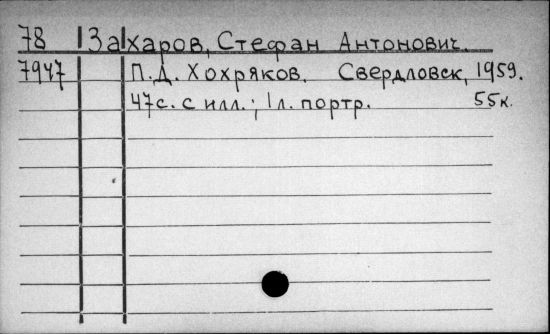 78 Захаров, Стефан Антонович.
7947 П.Д. Хохряков. Свердловск, 1959.
47с. с илл.; 1л. портр. 55к.